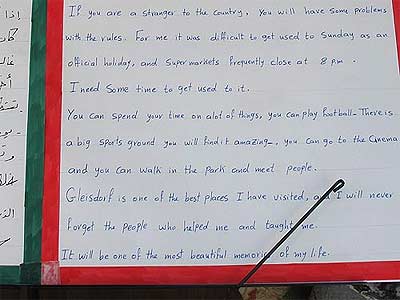 If you are a stranger to the country, you will have some problems
with the rules. For me it was difficult to get used to Sunday as an
official holiday, and Supermarkets frequently close at 8 pm.
I need some time to get used to it.
You can spend your time on alot of things, you can play football - There is
a big sports ground you will find it amazing -, you can go to the Cinema
and you can walk in the park and meet people.
Gleisdorf is one of the best places I have visited, and I will never
forget the people who helped me and taught me.
It will be one of the most beautiful memories of my life.